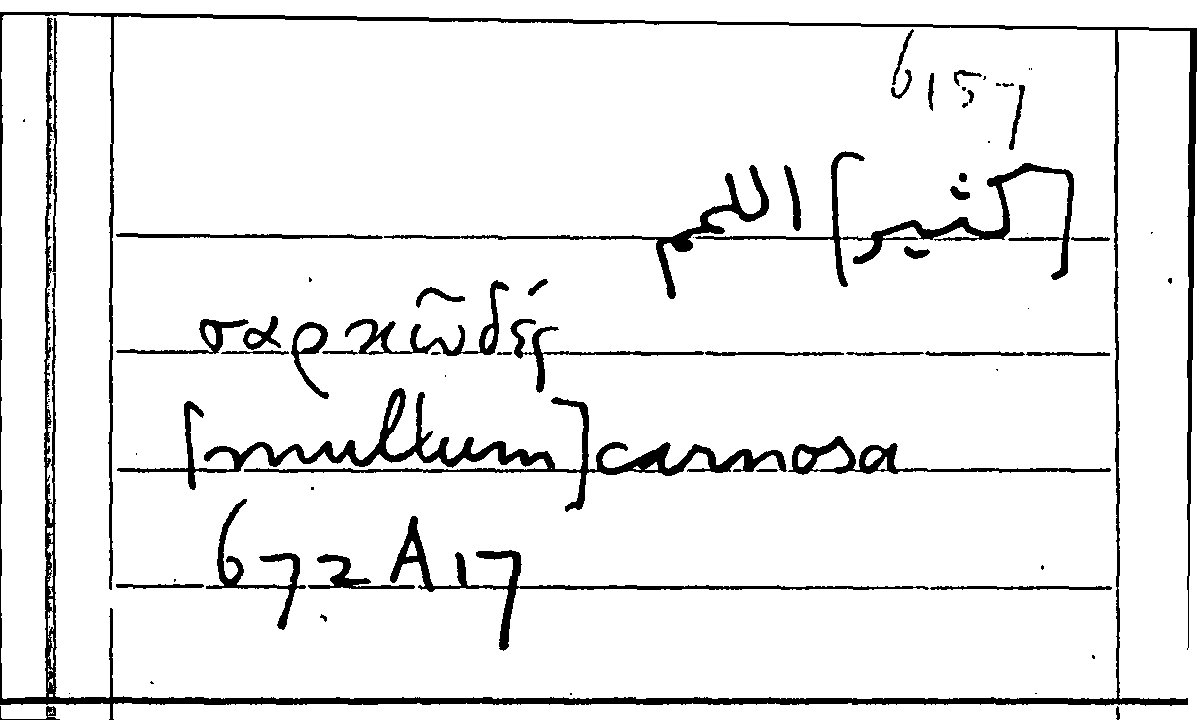 6157
[كثير] اللحم
σαρκῶδές
[multum] carnosa
672 A 17